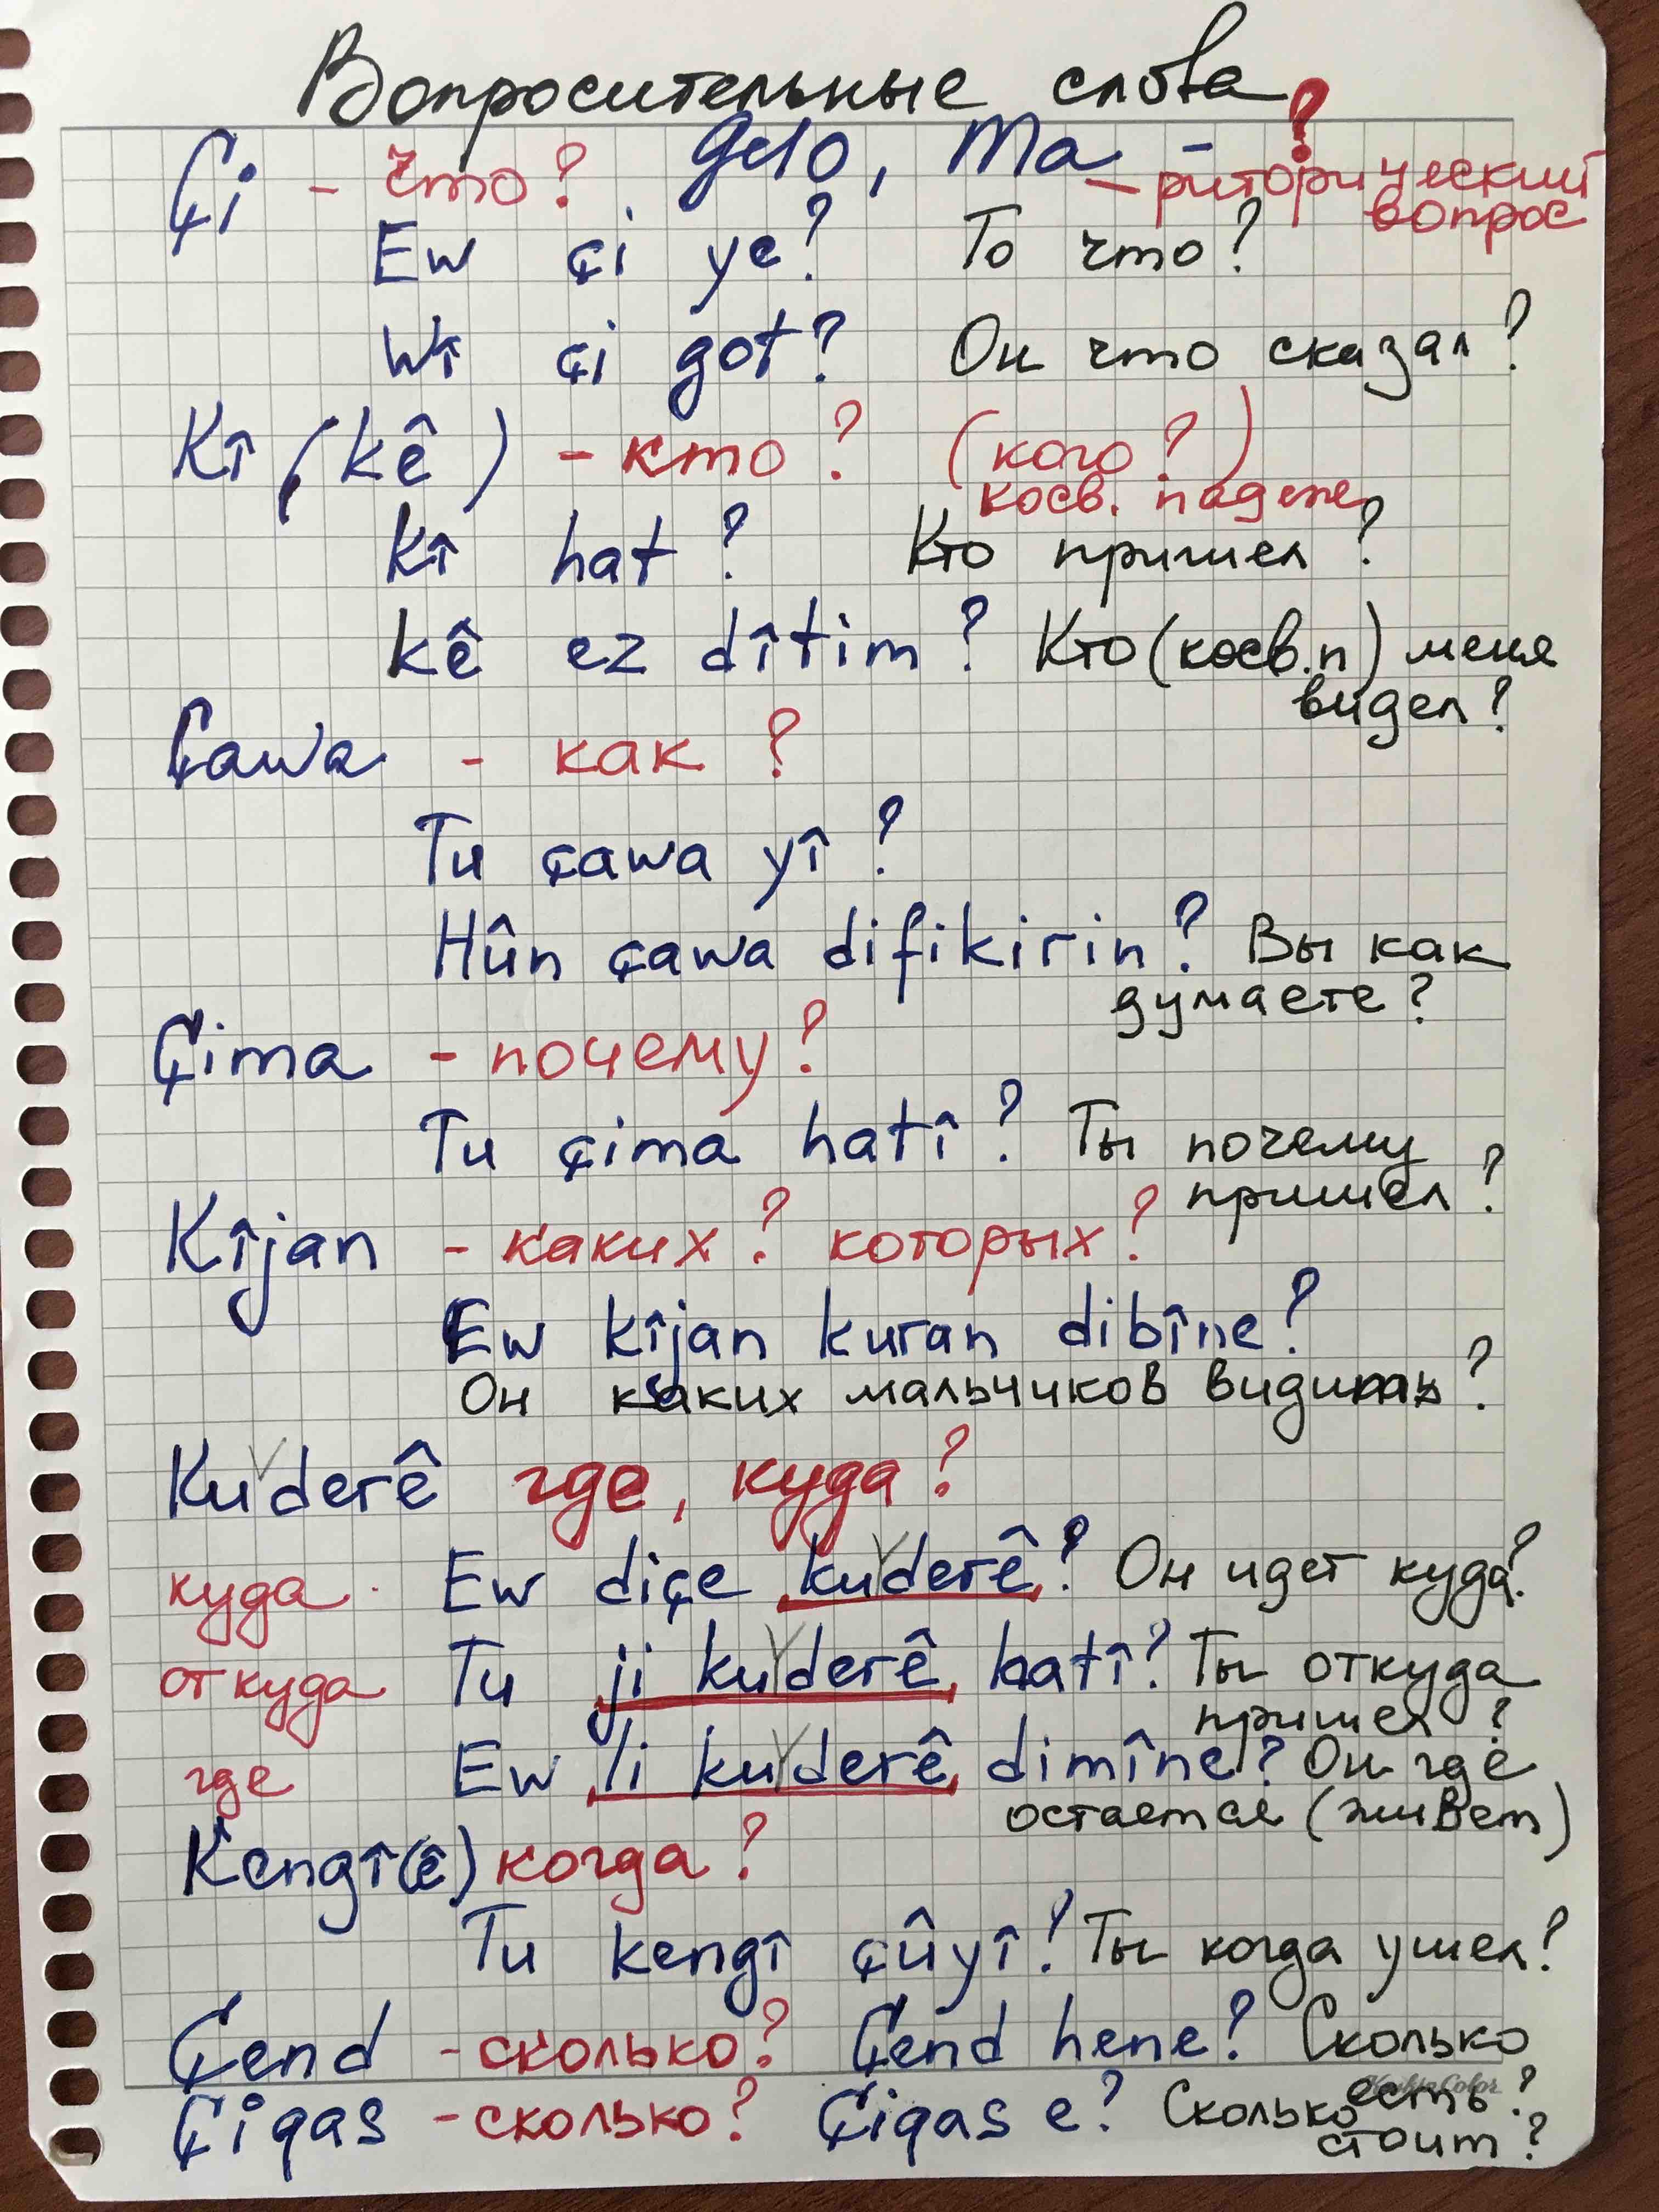 Вопросительные слова
Çi - что? gelo, ma - ?
- риторический
вопрос
Ew çi ye? То что?
Wî çi got? Он что сказал?
Kî (kê) - кто? (кого?)
косв. падеж
Kî hat? Кто пришел?
kê ez dîtim? Кто (косв.п) меня
видел?
Çawa - как?
Tu çawa yî?
Hûn çawa difikirin? Вы как
думаете?
Çima - почему?
Tu çima hatî? Ты почему
пришел?
Kîjan - каких? которых?
Ew kîjan kuran dibîne?
Он каких мальчиков видит?
Ku derê где, куда?
куда Ew diçe ku derê? Он идет куда?
откуда Tu ji ku derê hatî? Ты откуда
пришел?
где Ew li ku derê dimîne? Он где
остается (живет)
Kengî(ê) когда?
Tu kengî çûyî? Ты когда ушел?
Çend - сколько? Çend hene? Сколько
есть?
Çiqas - сколько? Çiqas e? Сколько
стоит?